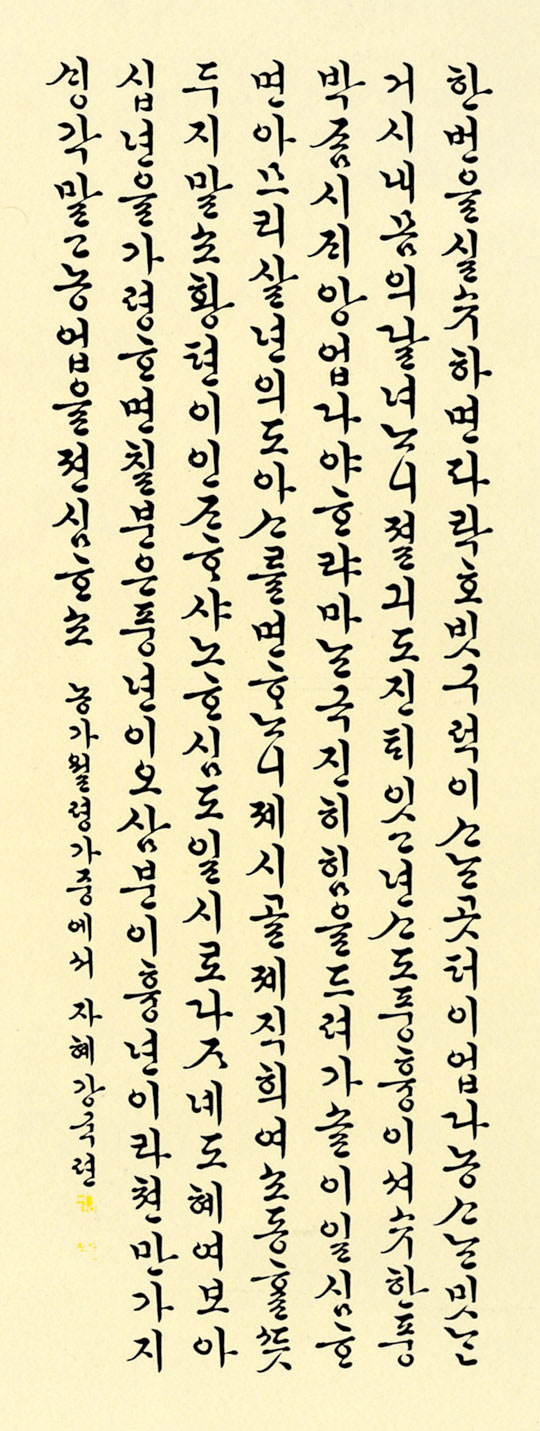 한번을실수하면다락호빗구럭이ᄉᆞᄂᆞᆫ곳터이업나농ᄉᆞᄂᆞᆫ밋ᄂᆞᆫ
거시내몸의달녀ᄂᆞ니졀긔도진퇴잇고년ᄉᆞ도풍흉이셔수한풍
박좀시ᄌᆡ앙업다야ᄒᆞ랴마ᄂᆞᆫ극진히힘을드려가솔이일심ᄒᆞ
면아므리살년의도아ᄉᆞ를면ᄒᆞᄂᆞ니졔시골졔직희여소동ᄒᆞᆯ뜻
두지말소황텬이인ᄌᆞᄒᆞ샤노ᄒᆞ심도일시로다ᄌᆞ네도혜여보아
십년을가령ᄒᆞ면칠분은풍년이오삼분이흉년이라쳔만가지
ᄉᆡᆼ각말고농업을젼심ᄒᆞ소 농가월령가중에서 자혜강국련